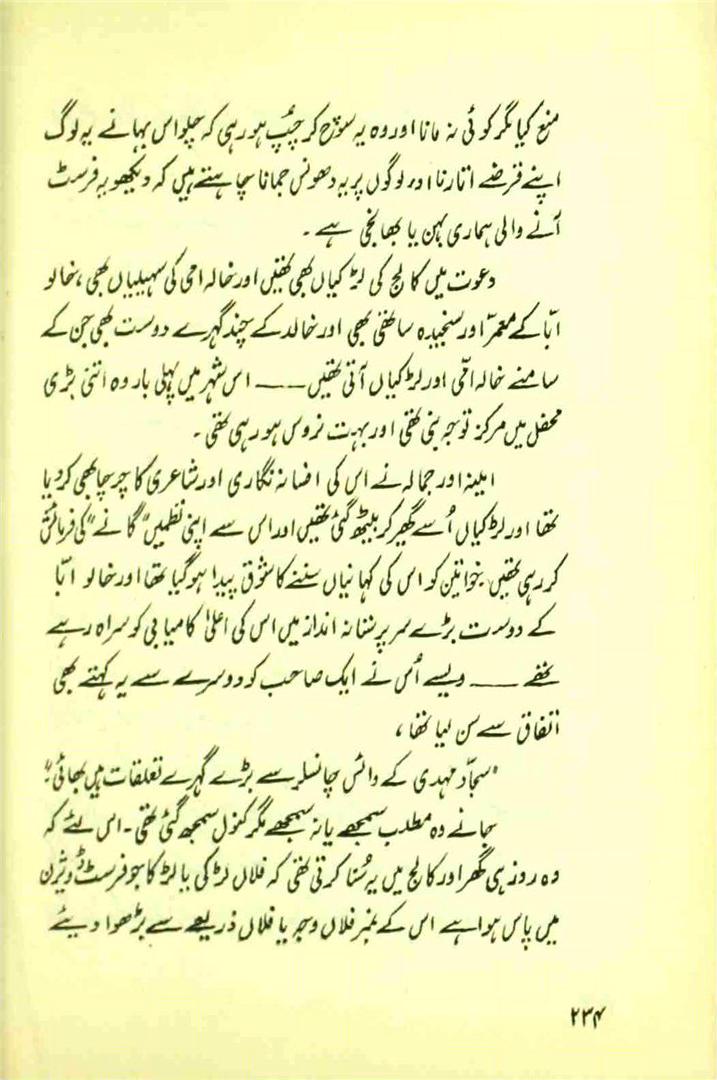 منع کیا مگر کوئی نہ مانا اور وہ یہ سوچ کر چپ ہو رہی کہ چلو اس بہانے یہ لوگ
اپنے قرضے اتارنا اور لوگوں پر یہ دھونس جمانا چاہتے ہیں کہ دیکھو یہ فرسٹ
آنے والی ہماری بہن یا بھانجی ہے۔
دعوت میں کالج کی لڑکیاں بھی تھیں اور خالہ امی کی سہیلیاں بھی، خالو
ابّا کے معمّر اور سنجیدہ ساتھی بھی اور خالد کے چند گہرے دوست بھی جن کے
سامنے خالہ امّی اور لڑکیاں آتی تھیں ــــ اس شہر میں پہلی بار وہ اتنی بڑی
محفل میں مرکز توجہ بنی تھی اور بہت نروس ہو رہی تھی۔
امینہ اور جمالہ نے اس کی افسانہ نگاری اور شاعری کا چرچا بھی کر دیا
تھا اور لڑکیاں اُسے گھیر کر بیٹھ گئی تھیں اور اس سے اپنی نظمیں "گانے" کی فرمائش
کر رہی تھیں خواتین کو اس کی کہانیاں سننے کا شوق پیدا ہو گیا تھا اور خالو ابّا
کے دوست بڑے سرپرستانہ انداز میں اس کی اعلیٰ کامیابی کو سراہ رہے
تھے ــــ ویسے اُس نے ایک صاحب کو دوسرے سے یہ کہتے بھی
اتفاق سے سن لیا تھا،
"سجّاد مہدی کے وائس چانسلر سے بڑے گہرے تعلقات ہیں بھائی!"
جانے وہ مطلب سمجھے یا نہ سمجھے مگر کنول سمجھ گئی تھی۔ اس لئے کہ
وہ روز ہی گھر اور کالج میں یہ سُنا کرتی تھی کہ فلاں لڑکی یا لڑکا جو فرسٹ ڈویژن
میں پاس ہوا ہے اس کے نمبر فلاں وجہ یا فلاں ذریعے سے بڑھوا دیئے
۲۳۴